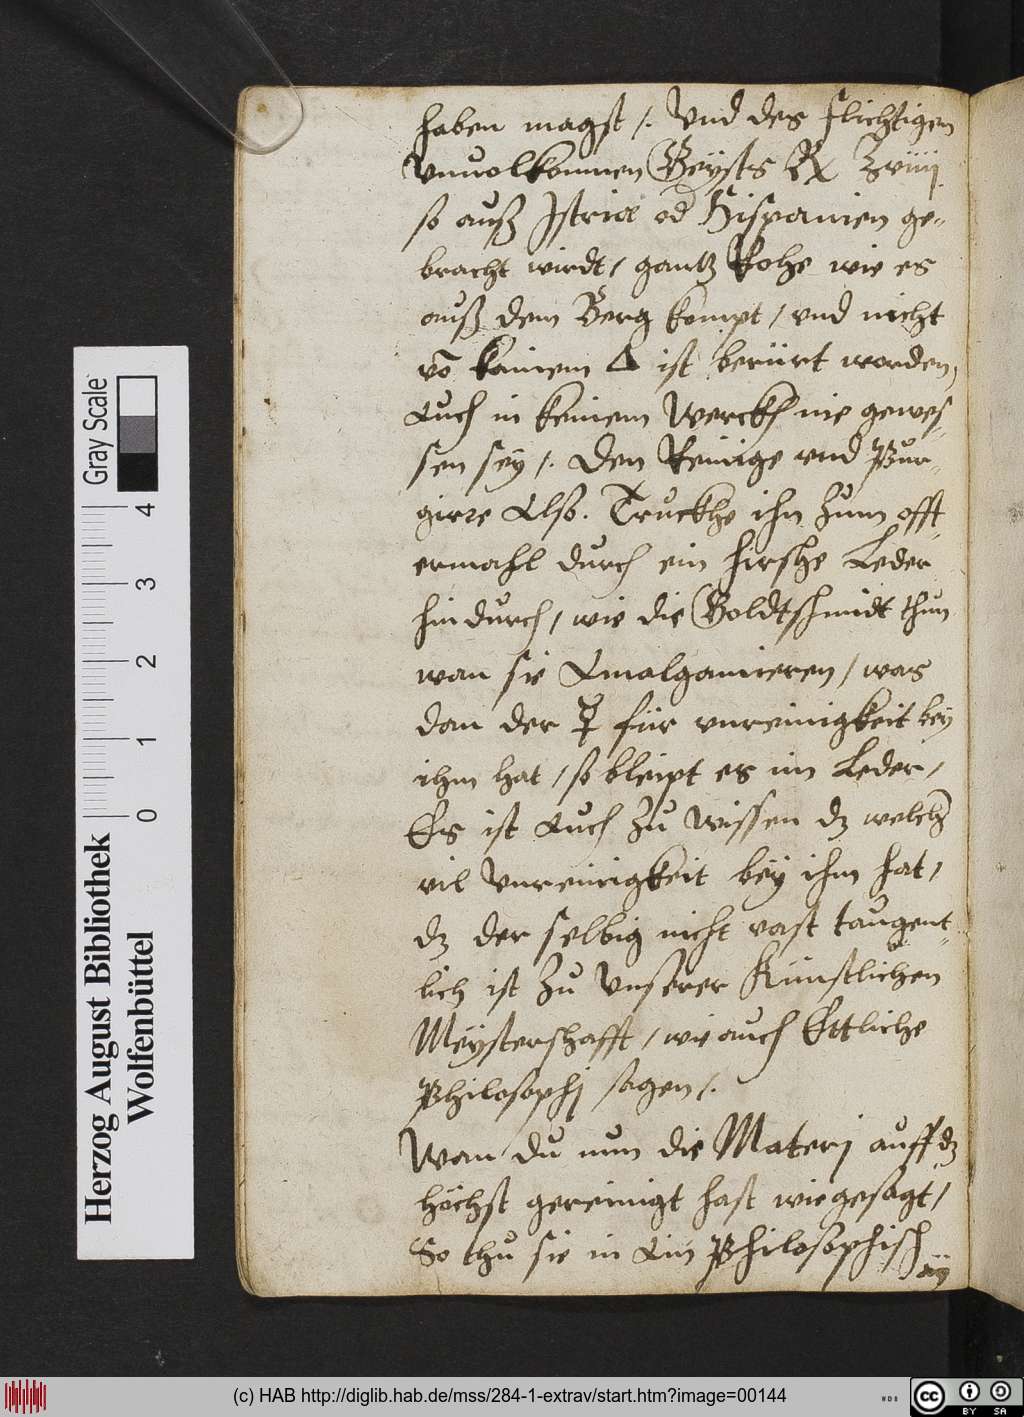 haben magst /. Vnd des flichtigen
Vnuolkomnen Geÿsts ℞ ℥viiij
so auß Istria od Hispanien ge-
bracht wirdt / gantz Rohe wie es
auß dem Berg kompt / vnd nicht
võ kainem 🜂 ist berürt worden,
Auch in keinem Werckh nie gewes-
sen seÿ /. Den Reinige vnd Pur-
girre Also. Truckhe ihn Zum offt-
ermahl durch ein hirshe Leder
hindurch / wie die Goldtschmidt thun
wan sie Amalgamieren / was
dan der ☿ für vnreinigkeit beÿ
ihm hat / so bleipt es im Leder /
Es ist Auch Zu wissen dz welch
vil Vnreinigkeit beÿ ihm hat /
dz der selbig nicht vast taugent-
lich ist Zu Vnserer Künstlichen
Meÿsterschafft / wie auch Ettliche
Philosophj sagen /.
Wan du nun die Materj auff dz
höchst gereinigt hast wie gesagt /
So thu sie in Ain Philosophisch
Gray Scale
4
3
2
1
0
Herzog August Bibliothek
Wolfenbüttel
(c) HAB http://diglib.hab.de/mss/284-1-extrav/start.htm?image=00144
WDB
CC BY SA